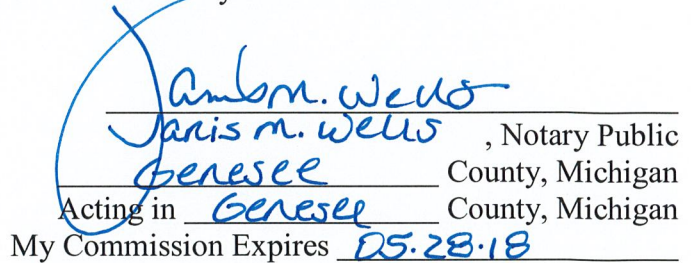 Janis M. Wells
Janis M. Wells, Notary Public
Genesee County, Michigan
Acting in Genesee County, Michigan
My Commission Expires 05.28.18